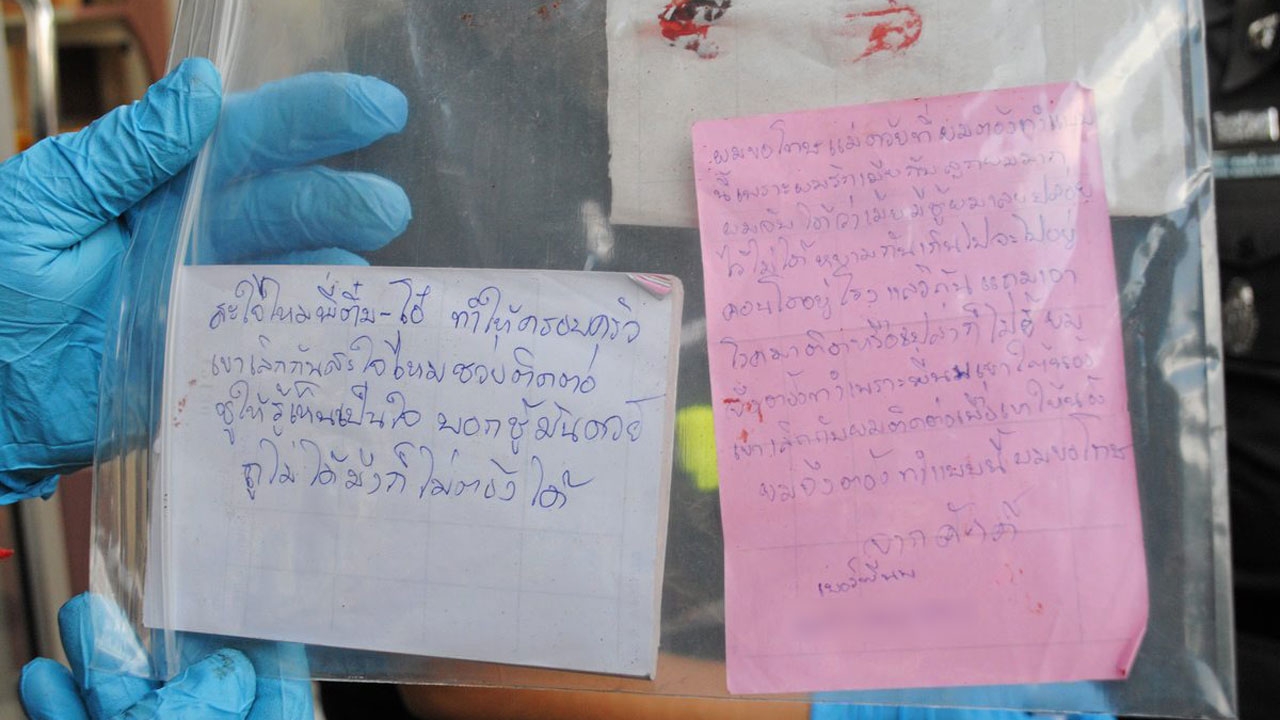 สะใจไหมพี่ตั้ม-โอ๋ ทำให้ครอบครัว
เขาเลิกกันสะใจไหมช่วยติดต่อ
ชู้ให้รู้เห็นเป็นใจ บอกชู้มันด้วย
กูไม่ได้มึงก็ไม่ต้องได้
ผมขอโทษแม่ด้วยที่ผมต้องทำแบบ
นี้เพราะผมรักเมียกับลูกผมมาก
ผมจับได้ว่าเมียมีชู้ผมเลย
ไว้ไม่ได้หยามกันเกินไปจะไปอยู่
คอนโดอยู่โรงแรมกัน แถมเอา
โรคมาติดหรือเปล่าก็ไม่รู้ ผม
ต้องทำเพราะพี่
เขาเลิกกับผมติดต่อ
ผมจึงต้องทำแบบนี้ผมขอโทษ
จาก
เบอร์